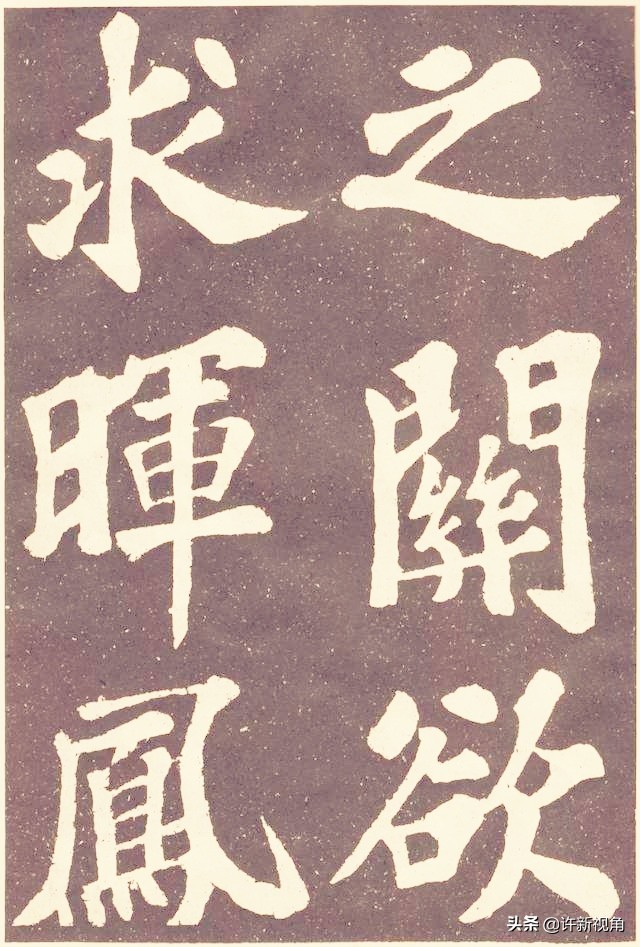 之關欲
求暉鳳
头条 @许新视角